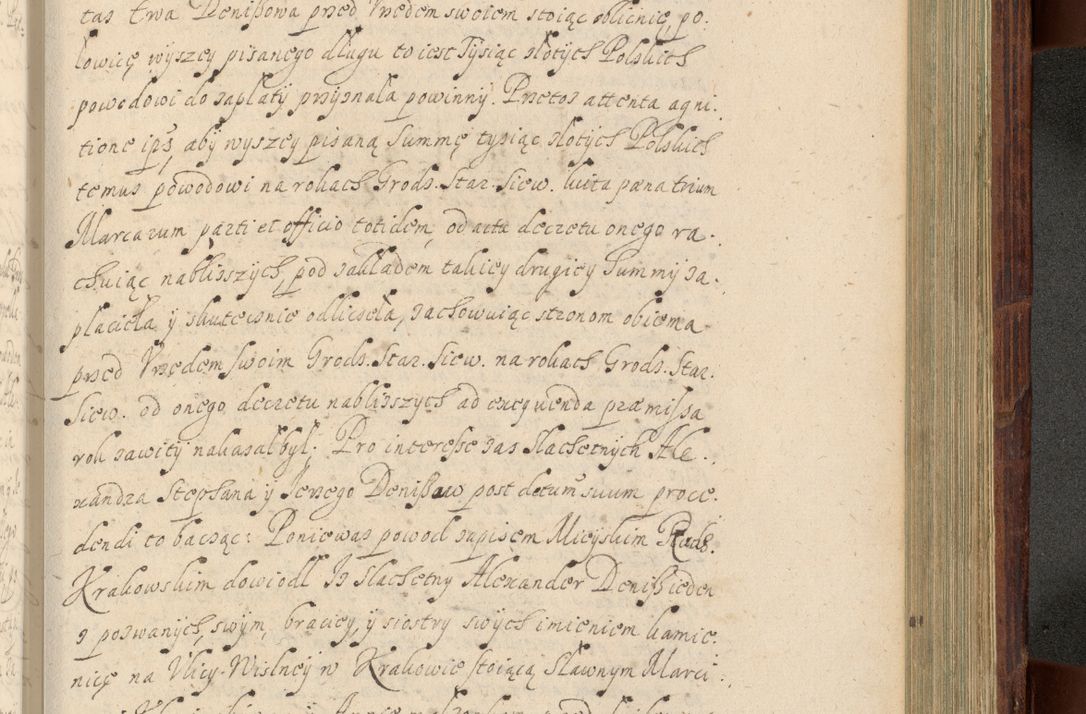 taz Ewa Denißowa przed Vrzędem swoiem stoiąc oblicnię, po.
łowicę wyszey pisanego długu to iest Tysiąc złotych Polskich
powodowi do zapłaty przyznała powinny. Przetoz attenta agni.
tione ips aby wyszey pisaną Summę tysiąc złotych Polskich
temus powodowi na rokach Grodz. Star. Siew. luita pæna trium
Marcarum parti et officio totidem, od acta decretu onego ra.
chuiąc nablizszych, pod zakładem takiey drugiey Summy za.
płaciła y skutecznie odliczeła, zachowuiąc stronom obiema
przed Vrzędem swoim Grodz. Star. Siew. na rokach Grodz. Star.
Siew. od onego decretu nablizszych ad exequenda præmissa
rok zawity nakazał był; Pro interesse zas Slachetnych Ale.
xandra Stephana y Jerzego Denißow post detum suum proce.
dendi to bacząc: Poniewaz powod zapisem Mieyskim Radz.
Krakowskim dowiodł Iz Slachetny Alexander Denißieden
z pozwanych, swym, braciey, y siostry swych imieniem kamie.
nicę na Vlicy Wislney w Krakowie stoiącą Sławnym Marci.